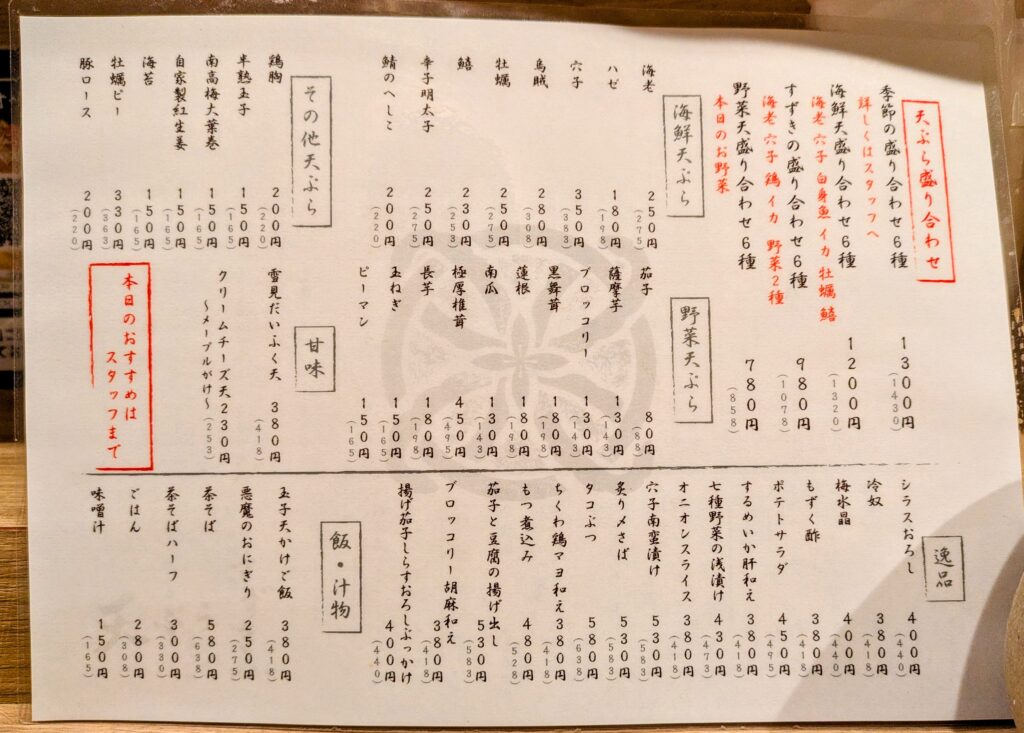 天ぷら盛り合わせ
季節の盛り合わせ6種 1300円 (1430)
詳しくはスタッフへ
海鮮天盛り合わせ6種 1200円 (1320)
海老 穴子 白身魚 イカ 牡蠣 鱚
すずきの盛り合わせ6種 980円 (1078)
海老 穴子 鶏 イカ 野菜2種
野菜天盛り合わせ6種 780円 (858)
本日のお野菜
海鮮天ぷら
海老 250円 (275)
ハゼ 180円 (198)
穴子 350円 (383)
烏賊 280円
牡蠣 250円 (275)
鱚 230円 (253)
辛子明太子 250円 (275)
鯖のへしこ 200円 (220)
その他天ぷら
鶏胸 200円 (220)
半熟玉子 150円 (165)
南高梅大葉巻 150円 (165)
自家製紅生姜 150円 (165)
海苔 150円 (165)
牡蠣ピー 330円 (363)
豚ロース 200円 (220)
野菜天ぷら
茄子 80円 (88)
薩摩芋 130円 (143)
ブロッコリー 130円 (143)
黒舞茸 180円 (198)
蓮根 180円 (198)
南瓜 130円 (143)
極厚椎茸 450円 (495)
長芋 180円 (198)
玉ねぎ 150円 (165)
ピーマン 150円 (165)
甘味
雪見だいふく天 380円 (418)
クリームチーズ天 230円 (253)
〜メープルがけ〜
本日のおすすめは
スタッフまで
逸品
シラスおろし 400円 (440)
冷奴 380円 (418)
梅水晶 400円 (440)
もずく酢 380円 (418)
ポテトサラダ 450円 (495)
するめいか肝和え 380円 (418)
七種野菜の浅漬け 430円 (473)
オニオンスライス 380円 (418)
穴子南蛮漬け 530円 (583)
炙り〆さば 530円 (583)
タコぶつ 580円 (638)
ちくわ鶏マヨ和え 380円 (418)
もつ煮込み 480円 (528)
茄子と豆腐の揚げ出し 530円 (583)
ブロッコリー胡麻和え 380円 (418)
揚げ茄子しらすおろしぶっかけ 400円 (440)
飯・汁物
玉子天かけご飯 380円 (418)
悪魔のおにぎり 250円 (275)
茶そば 580円 (638)
茶そばハーフ 300円 (330)
ごはん 280円 (308)
味噌汁 150円 (165)